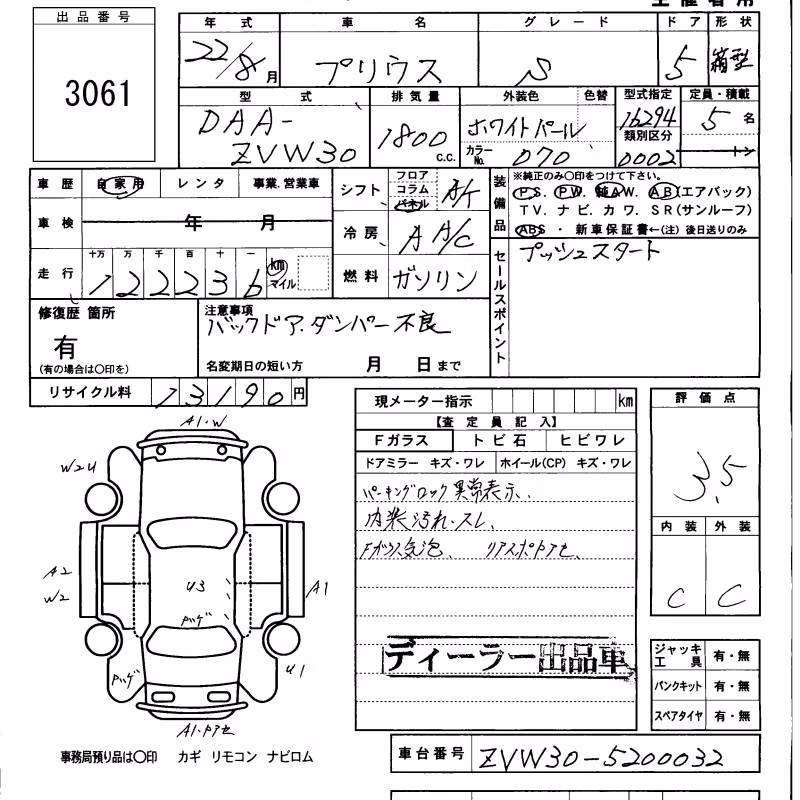 出品番号
3061
年式 車名 グレード ドア 形状
22/8月 プリウス S 5 箱型
型式 排気量 外装色 色替 型式指定 定員・積載
DAA-ZVW30 1800 c.c. ホワイトパール 16294 5名
カラーNo. 070 類別区分 0002 トン
車歴 自家用 レンタ 事業.営業車
シフト フロア コラム パネル AT
車検 年 月
冷房 A A/C
走行 十万 万 千 百 十 一 km マイル
122236
燃料 ガソリン
装備品
※純正のみ○印をつけて下さい。
P.S. P.W. 純A.W. A.B(エアバック)
T.V. ナビ. カワ. S.R(サンルーフ)
ABS ・ 新車保証書←(注) 後日送りのみ
セールスポイント
プッシュスタート
修復歴 箇所
有
(有の場合は○印を)
注意事項
バックドア.ダンパー不良
名変期日の短い方 月 日まで
リサイクル料 13190円
現メーター指示 km
【査定員記入】
Fガラス トビ石 ヒビワレ
ドアミラー キズ・ワレ ホイール(CP) キズ・ワレ
パーキングロック異常表示、
内装汚れ・スレ、
Fガラス気泡、 リアスポトアセ、
ディーラー出品車
評価点
3.5
内装 外装
C C
ジャッキ工具 有・無
パンクキット 有・無
スペアタイヤ 有・無
A1・W
W2U
A2
W2
U3
A1
U1
A1・トアセ
事務局預り品は○印 カギ リモコン ナビロム
車台番号 ZVW30-5200032